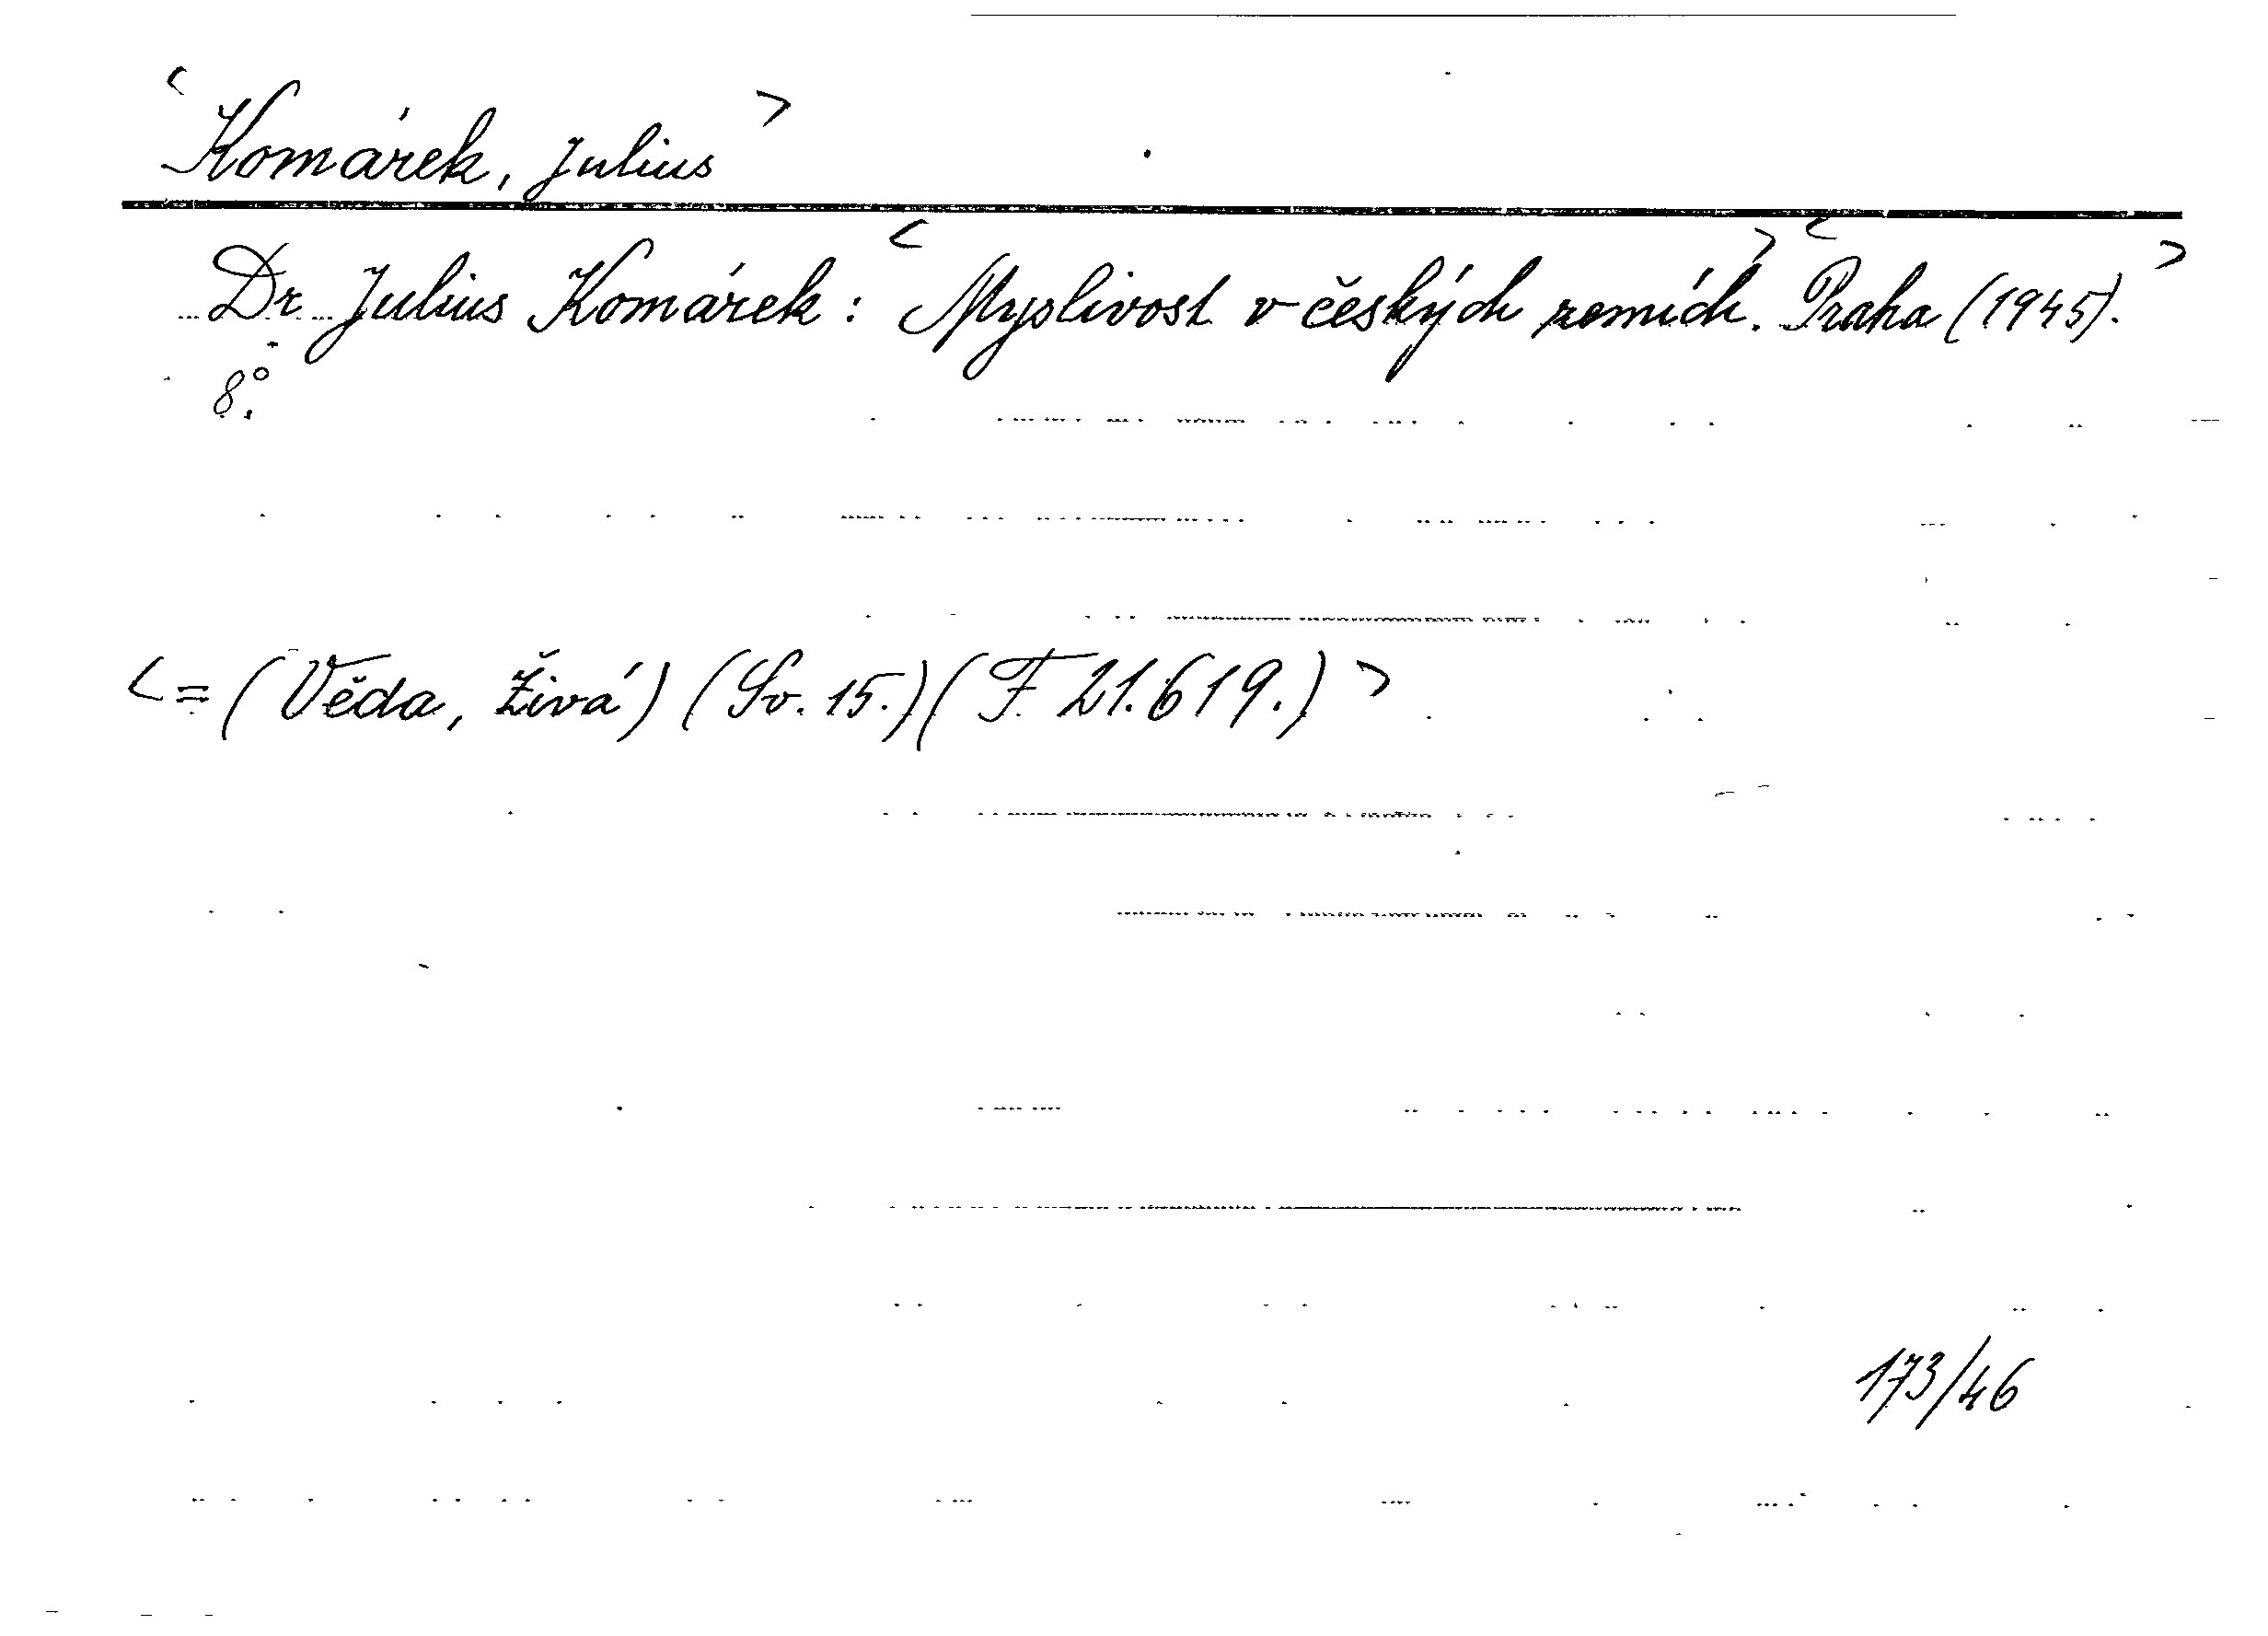 <Komárek, Julius>
Dr Julius Komárek: <Myslivost v českých zemích.> <Praha (1945).>
8°.
<=(Věda, Živá) (Sv. 15.) (F 21.619.)>
173/46